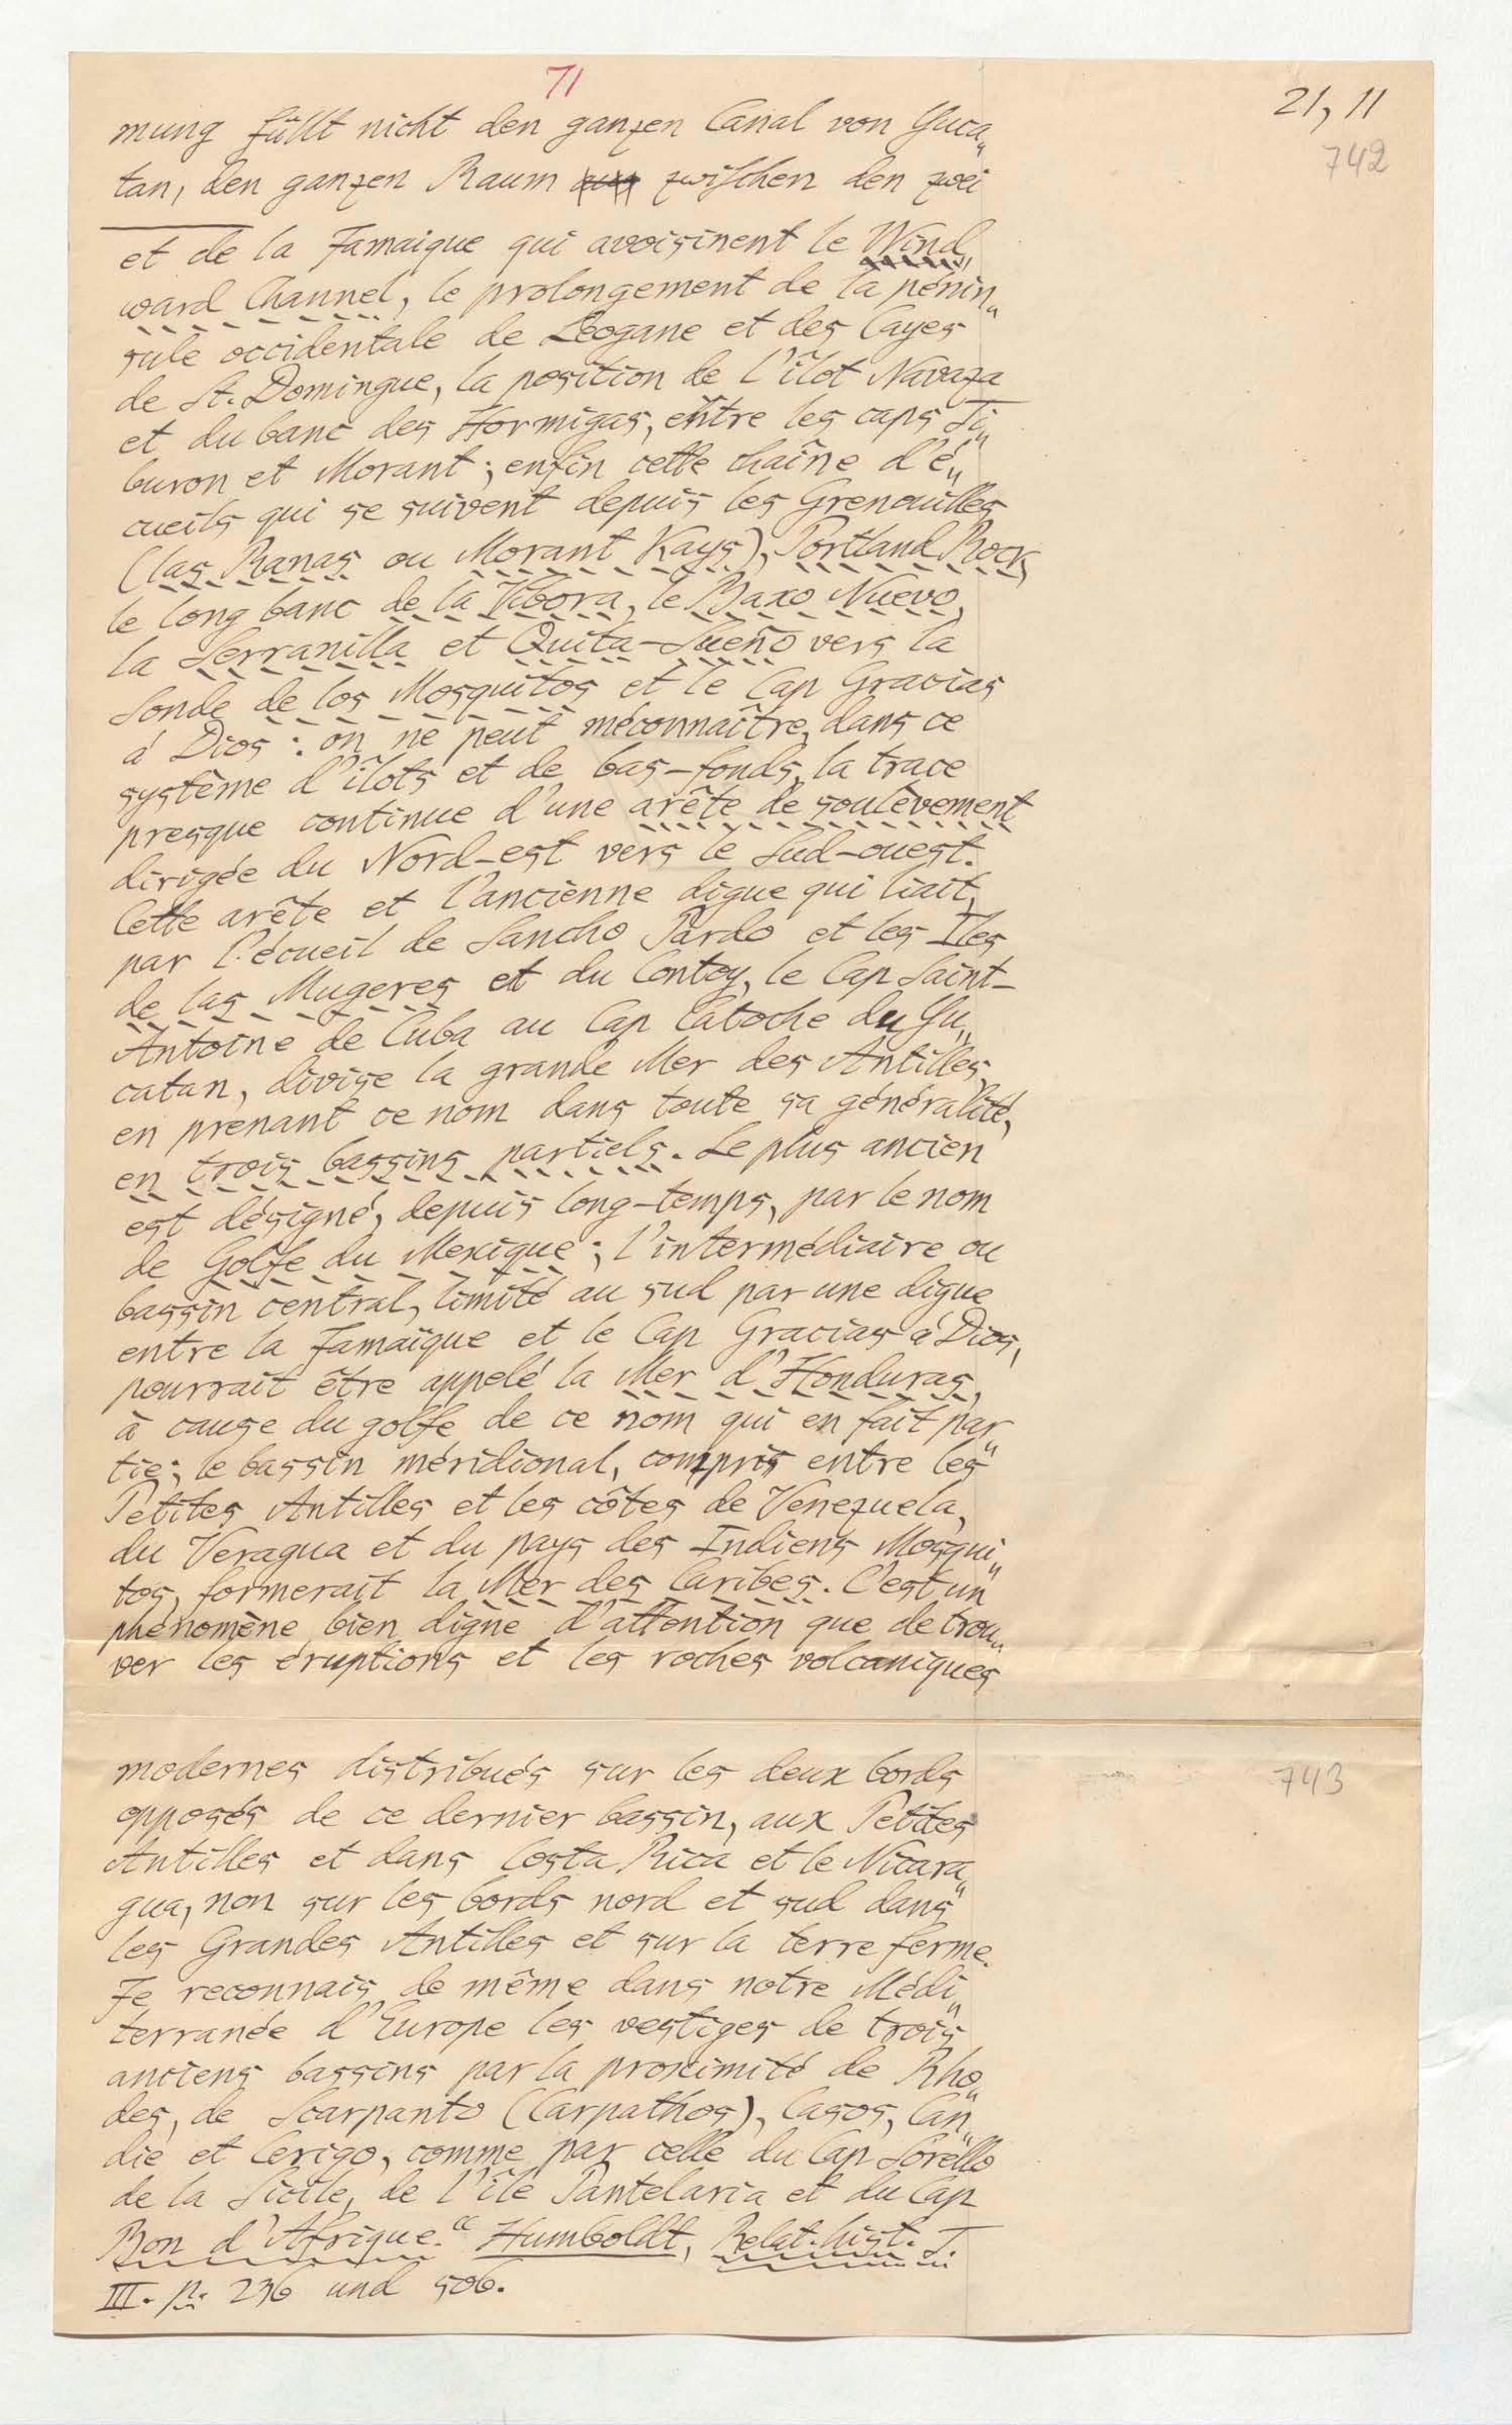 71
21, 11
742
mung füllt nicht den ganzen Canal von Yuca„
tan, den ganzen Raum zwischen den zwei
et de la Jamaique qui avoisinent le Wind„
ward Channel, le prolongement de la pénin„
sule occidentale de Léogane et des Cayes
de St. Domingue, la position de l'îlot Navaza
et du banc des Hormigas, entre les caps Ti„
buron et Morant; enfin cette chaîne d'é„
cueils qui se suivent depuis les Grenouilles
(las Ranas ou Morant Kays), Portland Rock,
le long banc de la Vibora, le Baxo Nuevo,
la Serranilla et Quita-Sueño vers la
Sonde de los Mosquitos et le Cap Gracias
á Dios: on ne peut méconnaître, dans ce
système d'îlots et de bas-fonds, la trace
presque continue d'une arête de soulèvement
dirigée du Nord-est vers le Sud-ouest.
Cette arête et l'ancienne digue qui liait,
par l'écueil de Sancho Pardo et les Iles
de las Mugeres et du Contoy, le Cap Saint-
Antoine de Cuba au Cap Catoche du Yu„
catan, divise la grande Mer des Antilles,
en prenant ce nom dans toute sa généralité,
en trois bassins partiels. Le plus ancien
est désigné, depuis long-temps, par le nom
de Golfe du Mexique; l'intermédiaire ou
bassin central, limité au sud par une digue
entre la Jamaïque et le Cap Gracias á Dios,
pourrait être appelé la Mer d'Honduras,
à cause du golfe de ce nom qui en fait par„
tie; le bassin méridional, compris entre les
Petites Antilles et les côtes de Venezuela,
du Veragua et du pays des Indiens Mosqui„
tos, formerait la Mer des Caribes. C'est un
phénomène bien digne d'attention que de trou„
ver les éruptions et les roches volcaniques
modernes distribués sur les deux bords
743
opposés de ce dernier bassin, aux Petites
Antilles et dans Costa Rica et le Nicara„
gua, non sur les bords nord et sud dans
les Grandes Antilles et sur la terre ferme.
Je reconnais de même dans notre Médi„
terranée d'Europe les vestiges de trois
anciens bassins par la proximité de Rho„
des, de Scarpanto (Carpathos), Casos, Can„
die et Cerigo, comme par celle du Cap Sorello
de la Sicile, de l'île Pantelaria et du Cap
Bon d'Afrique." Humboldt, Relat. hist. T.
III. p. 236 und 506.